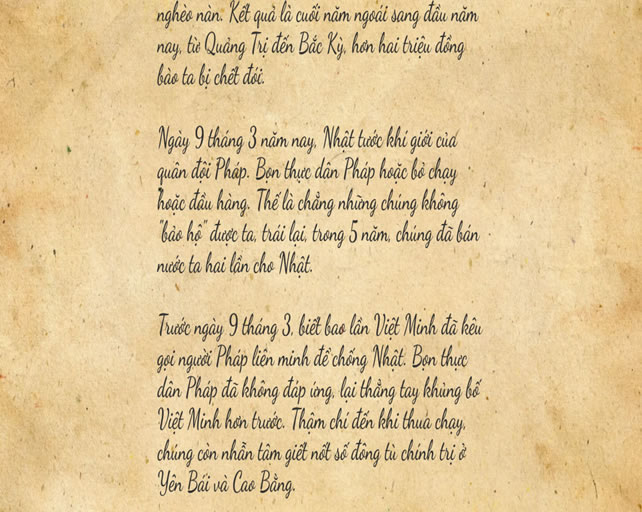 nghèo nàn. Kết quả là cuối năm ngoái sang đầu năm
nay, từ Quảng Trị đến Bắc Kỳ, hơn hai triệu đồng
bào ta bị chết đói.
Ngày 9 tháng 3 năm nay, Nhật tước khí giới của
quân đội Pháp. Bọn thực dân Pháp hoặc bỏ chạy
hoặc đầu hàng. Thế là chẳng những chúng không
"bảo hộ" được ta, trái lại, trong 5 năm, chúng đã bán
nước ta hai lần cho Nhật.
Trước ngày 9 tháng 3, biết bao lần Việt Minh đã kêu
gọi người Pháp liên minh để chống Nhật. Bọn thực
dân Pháp đã không đáp ứng, lại thẳng tay khủng bố
Việt Minh hơn trước. Thậm chí đến khi thua chạy,
chúng còn nhẫn tâm giết nốt số đông tù chính trị ở
Yên Bái và Cao Bằng.